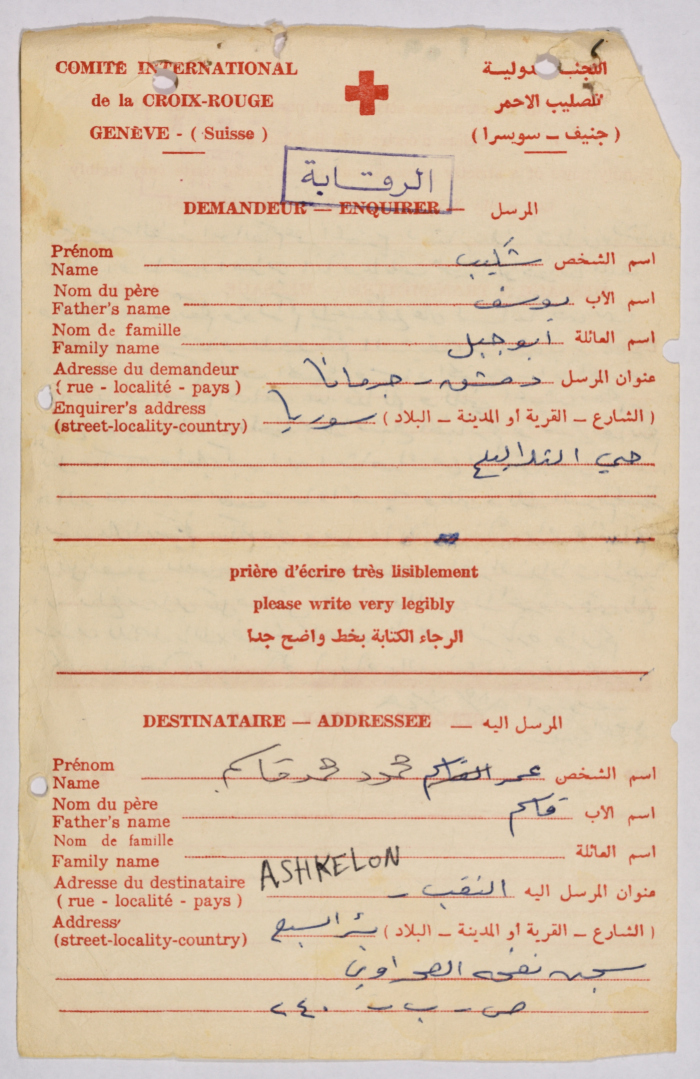 COMITÉ INTERNATIONAL
de la CROIX-ROUGE
GENÈVE - ( Suisse )
اللجنة الدولية
للصليب الاحمر
( جنيف – سويسرا )
الرقابة
DEMANDEUR — ENQUIRER — المرسل
Prénom
Name
اسم الشخص شكيب
Nom du père
Father's name
اسم الأب يوسف
Nom de famille
Family name
اسم العائلة أبو جبل
Adresse du demandeur
( rue - localité - pays )
عنوان المرسل دمشق - جرمانا
Enquirer's address
(street-locality-country)
( الشارع – القرية أو المدينة – البلاد ) سوريا
حي
prière d'écrire très lisiblement
please write very legibly
الرجاء الكتابة بخط واضح جداً
DESTINATAIRE — ADDRESSEE — المرسل اليه
Prénom
Name
اسم الشخص عمر القاسم محمود محمد قاسم
Nom du père
Father's name
اسم الأب قاسم
Nom de famille
Family name
اسم العائلة
ASHKELON
Adresse du destinataire
( rue - localité - pays )
عنوان المرسل اليه النقب -
Address
(street-locality-country)
( الشارع – القرية أو المدينة – البلاد ) بئر السبع
سجن نفحه الصحراوي
ص - ب - ٢٤٠